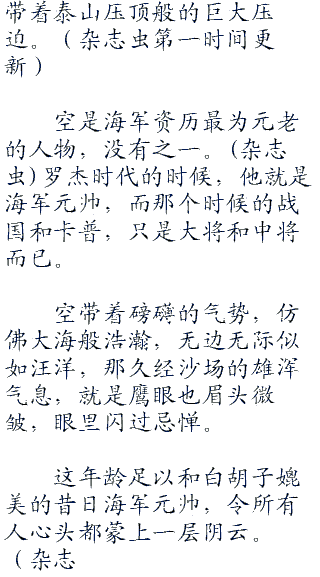 带着泰山压顶般的巨大压
迫。（杂志虫第一时间更
新）
空是海军资历最为元老
的人物，没有之一。(杂志
虫)罗杰时代的时候，他就是
海军元帅，而那个时候的战
国和卡普，只是大将和中将
而已。
空带着磅礴的气势，仿
佛大海般浩瀚，无边无际似
如汪洋，那久经沙场的雄浑
气息，就是鹰眼也眉头微
皱，眼里闪过忌惮。
这年龄足以和白胡子媲
美的昔日海军元帅，令所有
人心头都蒙上一层阴云。
（杂志